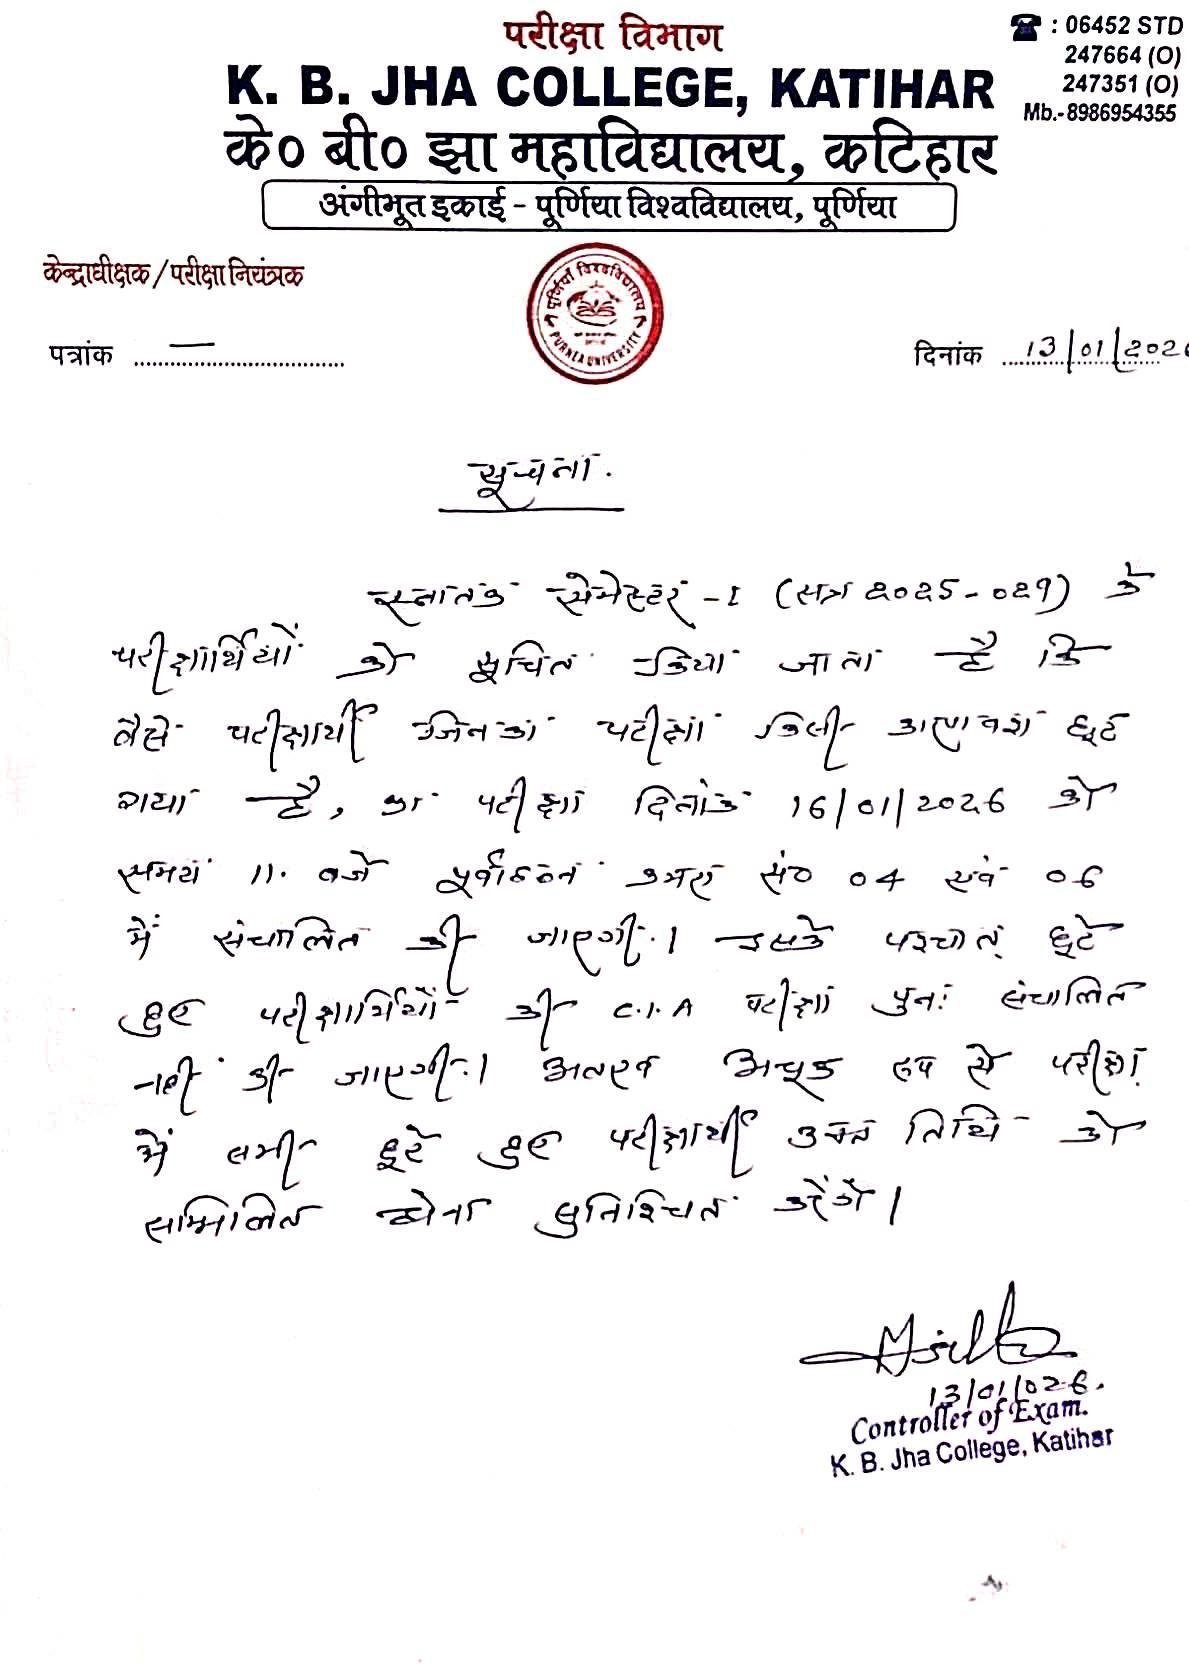 परीक्षा विभाग
K. B. JHA COLLEGE, KATIHAR
के० बी० झा महाविद्यालय, कटिहार
अंगीभूत इकाई - पूर्णिया विश्वविद्यालय, पूर्णिया
☎ : 06452 STD
247664 (O)
247351 (O)
Mb.- 8986954355
केन्द्राधीक्षक/परीक्षा नियंत्रक
पूर्णियाँ विश्वविद्यालय
PURNEA UNIVERSITY
पत्रांक —
दिनांक 13/01/2026
सूचना.
स्नातक सेमेस्टर - I (सत्र 2025-029) के
परीक्षार्थियों को सूचित किया जाता है कि
वैसे परीक्षार्थी जिनका परीक्षा किसी कारणवश छूट
गया है, का परीक्षा दिनांक 16/01/2026 को
समय 11. बजे पूर्वाहन कमरा सं० 04 एवं 06
में संचालित की जाएगी। इसके पश्चात् छूटे
हुए परीक्षार्थियों की C.I.A परीक्षा पुनः संचालित
नहीं की जाएगी। अतएव अचूक रूप से परीक्षा
में सभी छूटे हुए परीक्षार्थी उक्त तिथि को
सम्मिलित होना सुनिश्चित करेंगे।
13/01/026.
Controller of Exam.
K. B. Jha College, Katihar